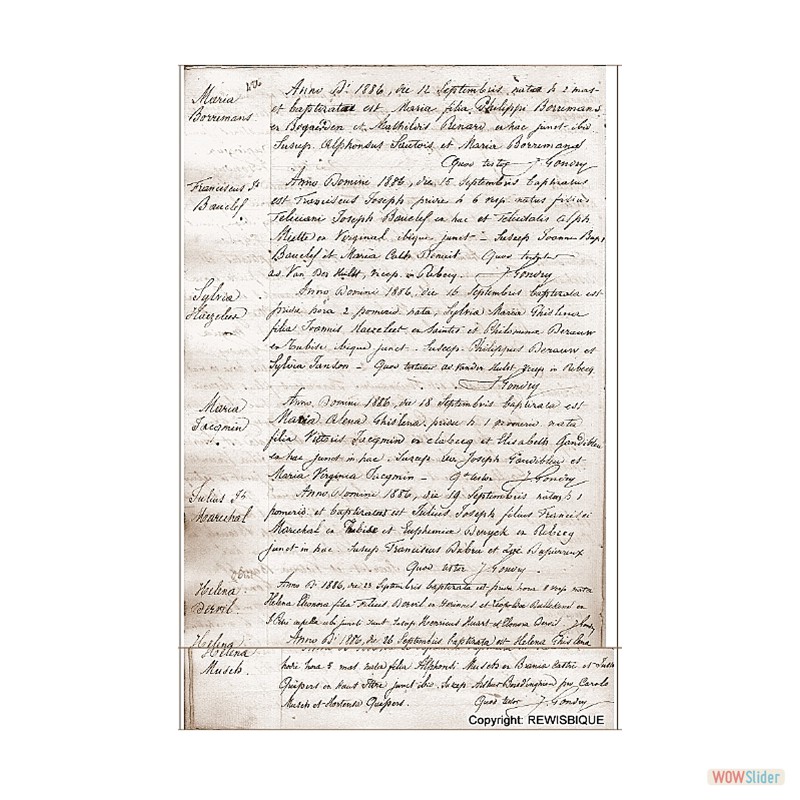 Maria
Borremans
Anno D. 1886, die 12 Septembris nata h 2 mat
et baptizata est Maria filia Philippi Borremans
ex Bogaerden et Mathildis Renard ex hac junct. ibid
Suscep. Alphonsus Sautois et Maria Borremans
Quod testor J. Gondry
Franciscus Jh
Bauclef
Anno Domini 1886, die 15 Septembris baptizatus
est Franciscus Joseph pridie h 6 vesp. natus filius
Feliciani Joseph Bauclef ex hac et
Miette ex Virginal ibique junct. Suscep Joannes Bap.
Bauclef et Maria Cath. Benoit. Quod testor
J. Gondry
Sylvia
Haezeleer
Anno Domini 1886, die 16 Septembris baptizata est
pridie hora 2 pomerid. nata, Sylvia Maria Ghislena
filia Joannis Haezeleer ex Saintes et Philomena Deraux
ex Tubise ibique junct. Suscep. Philippus Deraux et
Sylvia Janson - Quod testatur
J. Gondry
Maria
Jacqmin
Anno Domini 1886, die 18 Septembris baptizata est
Maria Alena Ghislena, pridie h 1 nata
filia Victoris Jacqmin ex Clabecq et Elisabeth Gaudibleu
ex hac junct. in hac. Suscep. Joseph Gaudibleu et
Maria Virginia Jacqmin - Q. testor J. Gondry
Julius Jh
Marechal
Anno Domini 1886, die 19 Septembris natus h 1
pomerid. et baptizatus est Julius Joseph filius Francisci
Marechal ex Tubise et Euphemia ex Rebecq
junct. in hac. Suscep Franciscus et Zoé
Quod testor J. Gondry
Helena
Dervil
Anno D. 1886, die 23 Septembris baptizata est pridie hora 8 vesp. nata
Helena Eleonora filia Felicis Dervil ex et
junct. sunt Suscep Henricus Huart et Elenora Dervil J. Gondry
Helena
Helena
Musch.
Anno D. 1886, die 26 Septembris baptizata est Helena Ghislena
hodie hora 5 mat. nata filia Alphonsi Musch ex Brania Castri et
Quipers ex Haut Ittre junct. ibid. Suscep. Arthur pro Carolo
Musch et Hortense Quipers. Quod testor J. Gondry
Copyright: REWISBIQUE
WOWSlider